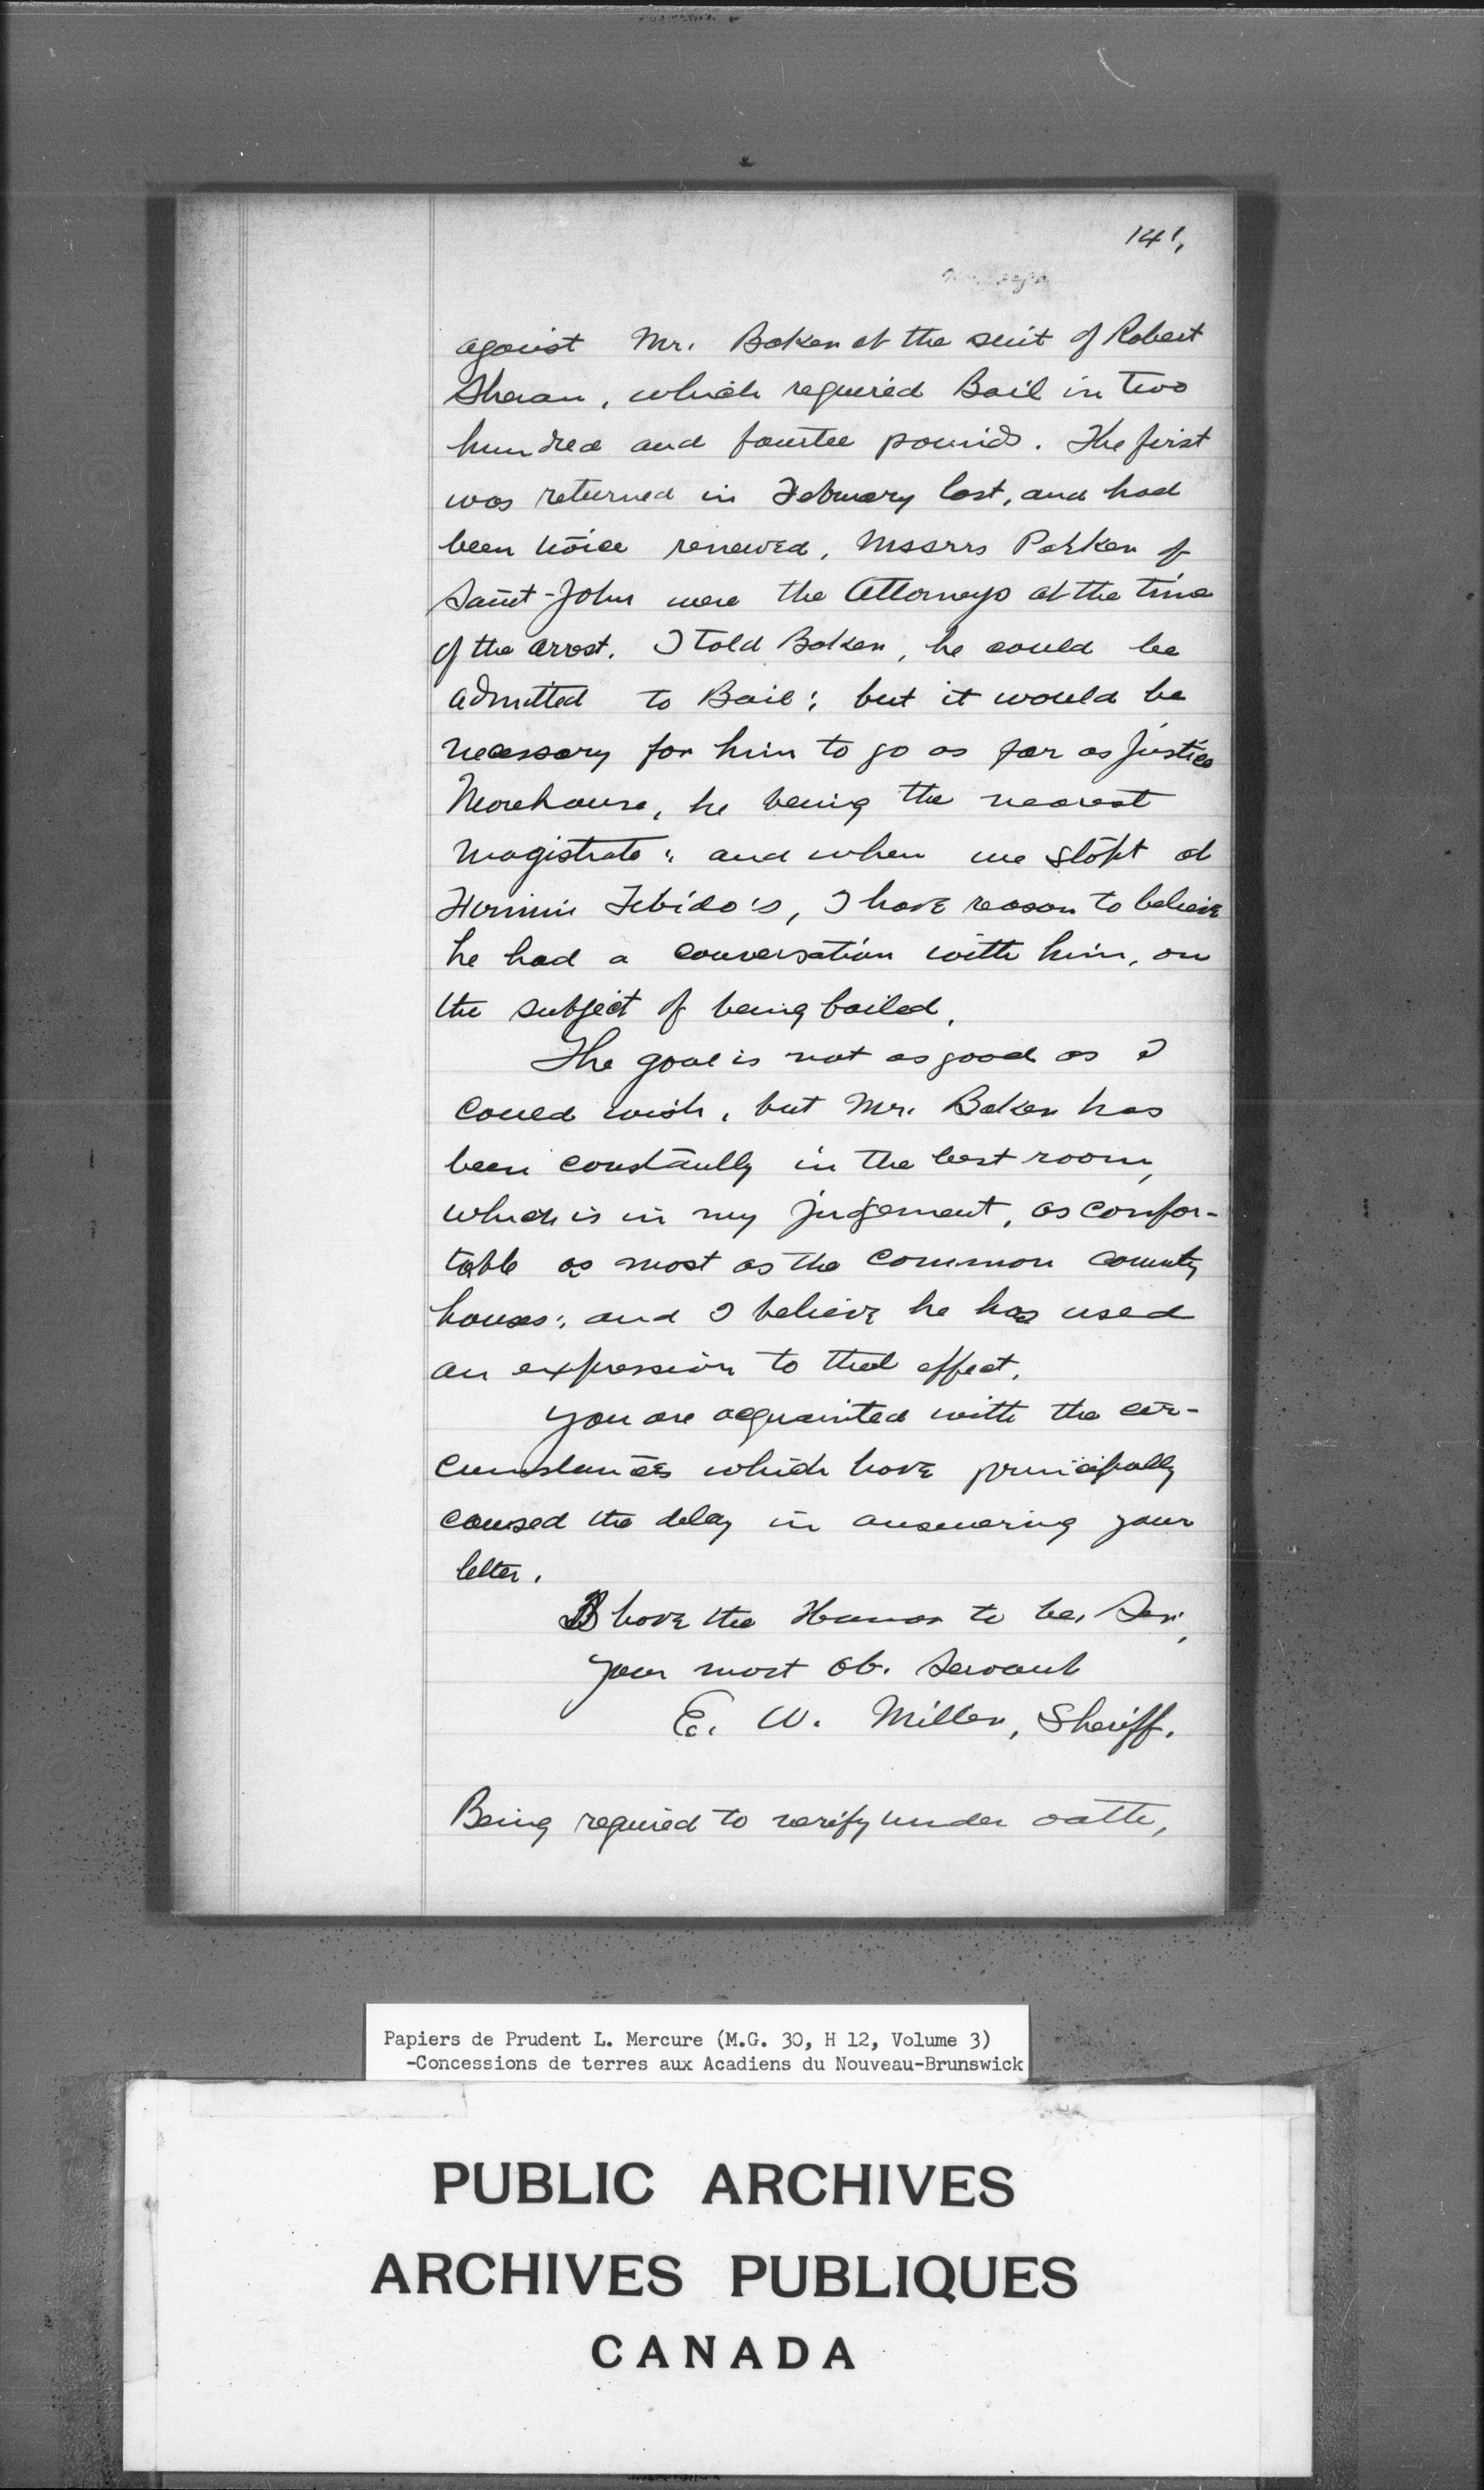 141,
against Mr. Baker at the suit of Robert
Sheran, which required Bail in two
hundred and fourtee pounds. The first
was returned in February last, and had
been twice renewed, Mssrrs Parker of
Saint-John were the Attorneys at the time
of the arrest. I told Baker, he could be
admitted to Bail; but it would be
necessary for him to go as far as Justice
Morehouse, he being the nearest
magistrate; and when we stopt at
Firmin Tibido's, I have reason to believe
he had a conversation with him, on
the subject of being bailed.
The goal is not as good as I
could wish, but Mr. Baker has
been constantly in the best room,
which is in my jugement, as confor-
table as most as the common county
houses; and I believe he has used
an expression to that effect.
you are acquainted with the cir-
cumstances which have principally
caused the delay in answering your
letter.
I have the Honor to be, Sir,
your most ob. Servant
E. W. Miller, Sheriff.
Being required to verify under oath,
Papiers de Prudent L. Mercure (M.G. 30, H 12, Volume 3)
-Concessions de terres aux Acadiens du Nouveau-Brunswick
PUBLIC ARCHIVES
ARCHIVES PUBLIQUES
CANADA